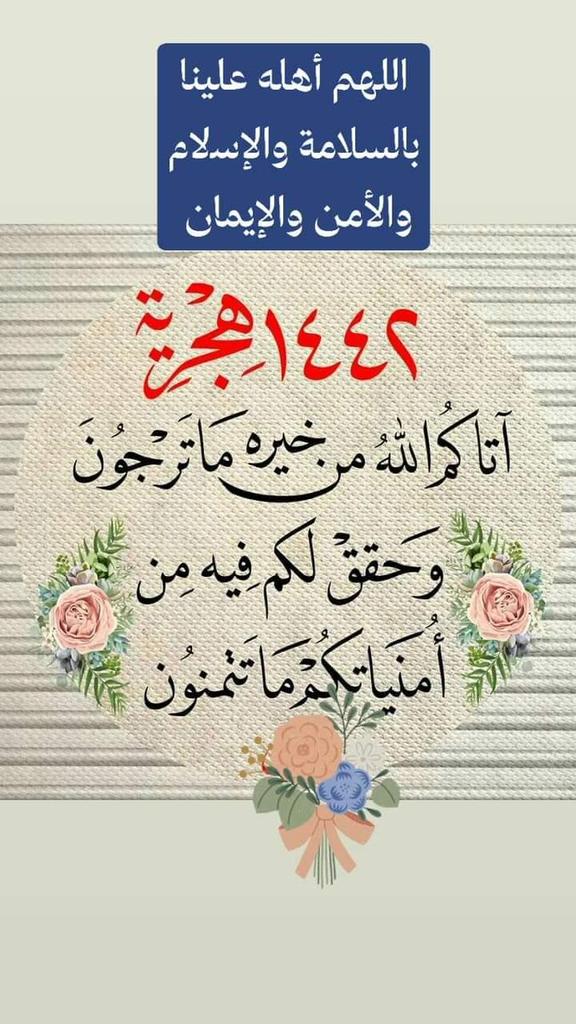 اللهم أهله علينا
بالسلامة والإسلام
والأمن والإيمان
١٤٤٢هِجْرِية
آتاكمُ اللهُ من خيره مَا تَرْجونَ
وَحَققْ لكم فِيه مِن
أُمنَياتكُمْ مَا تَتمنوُن